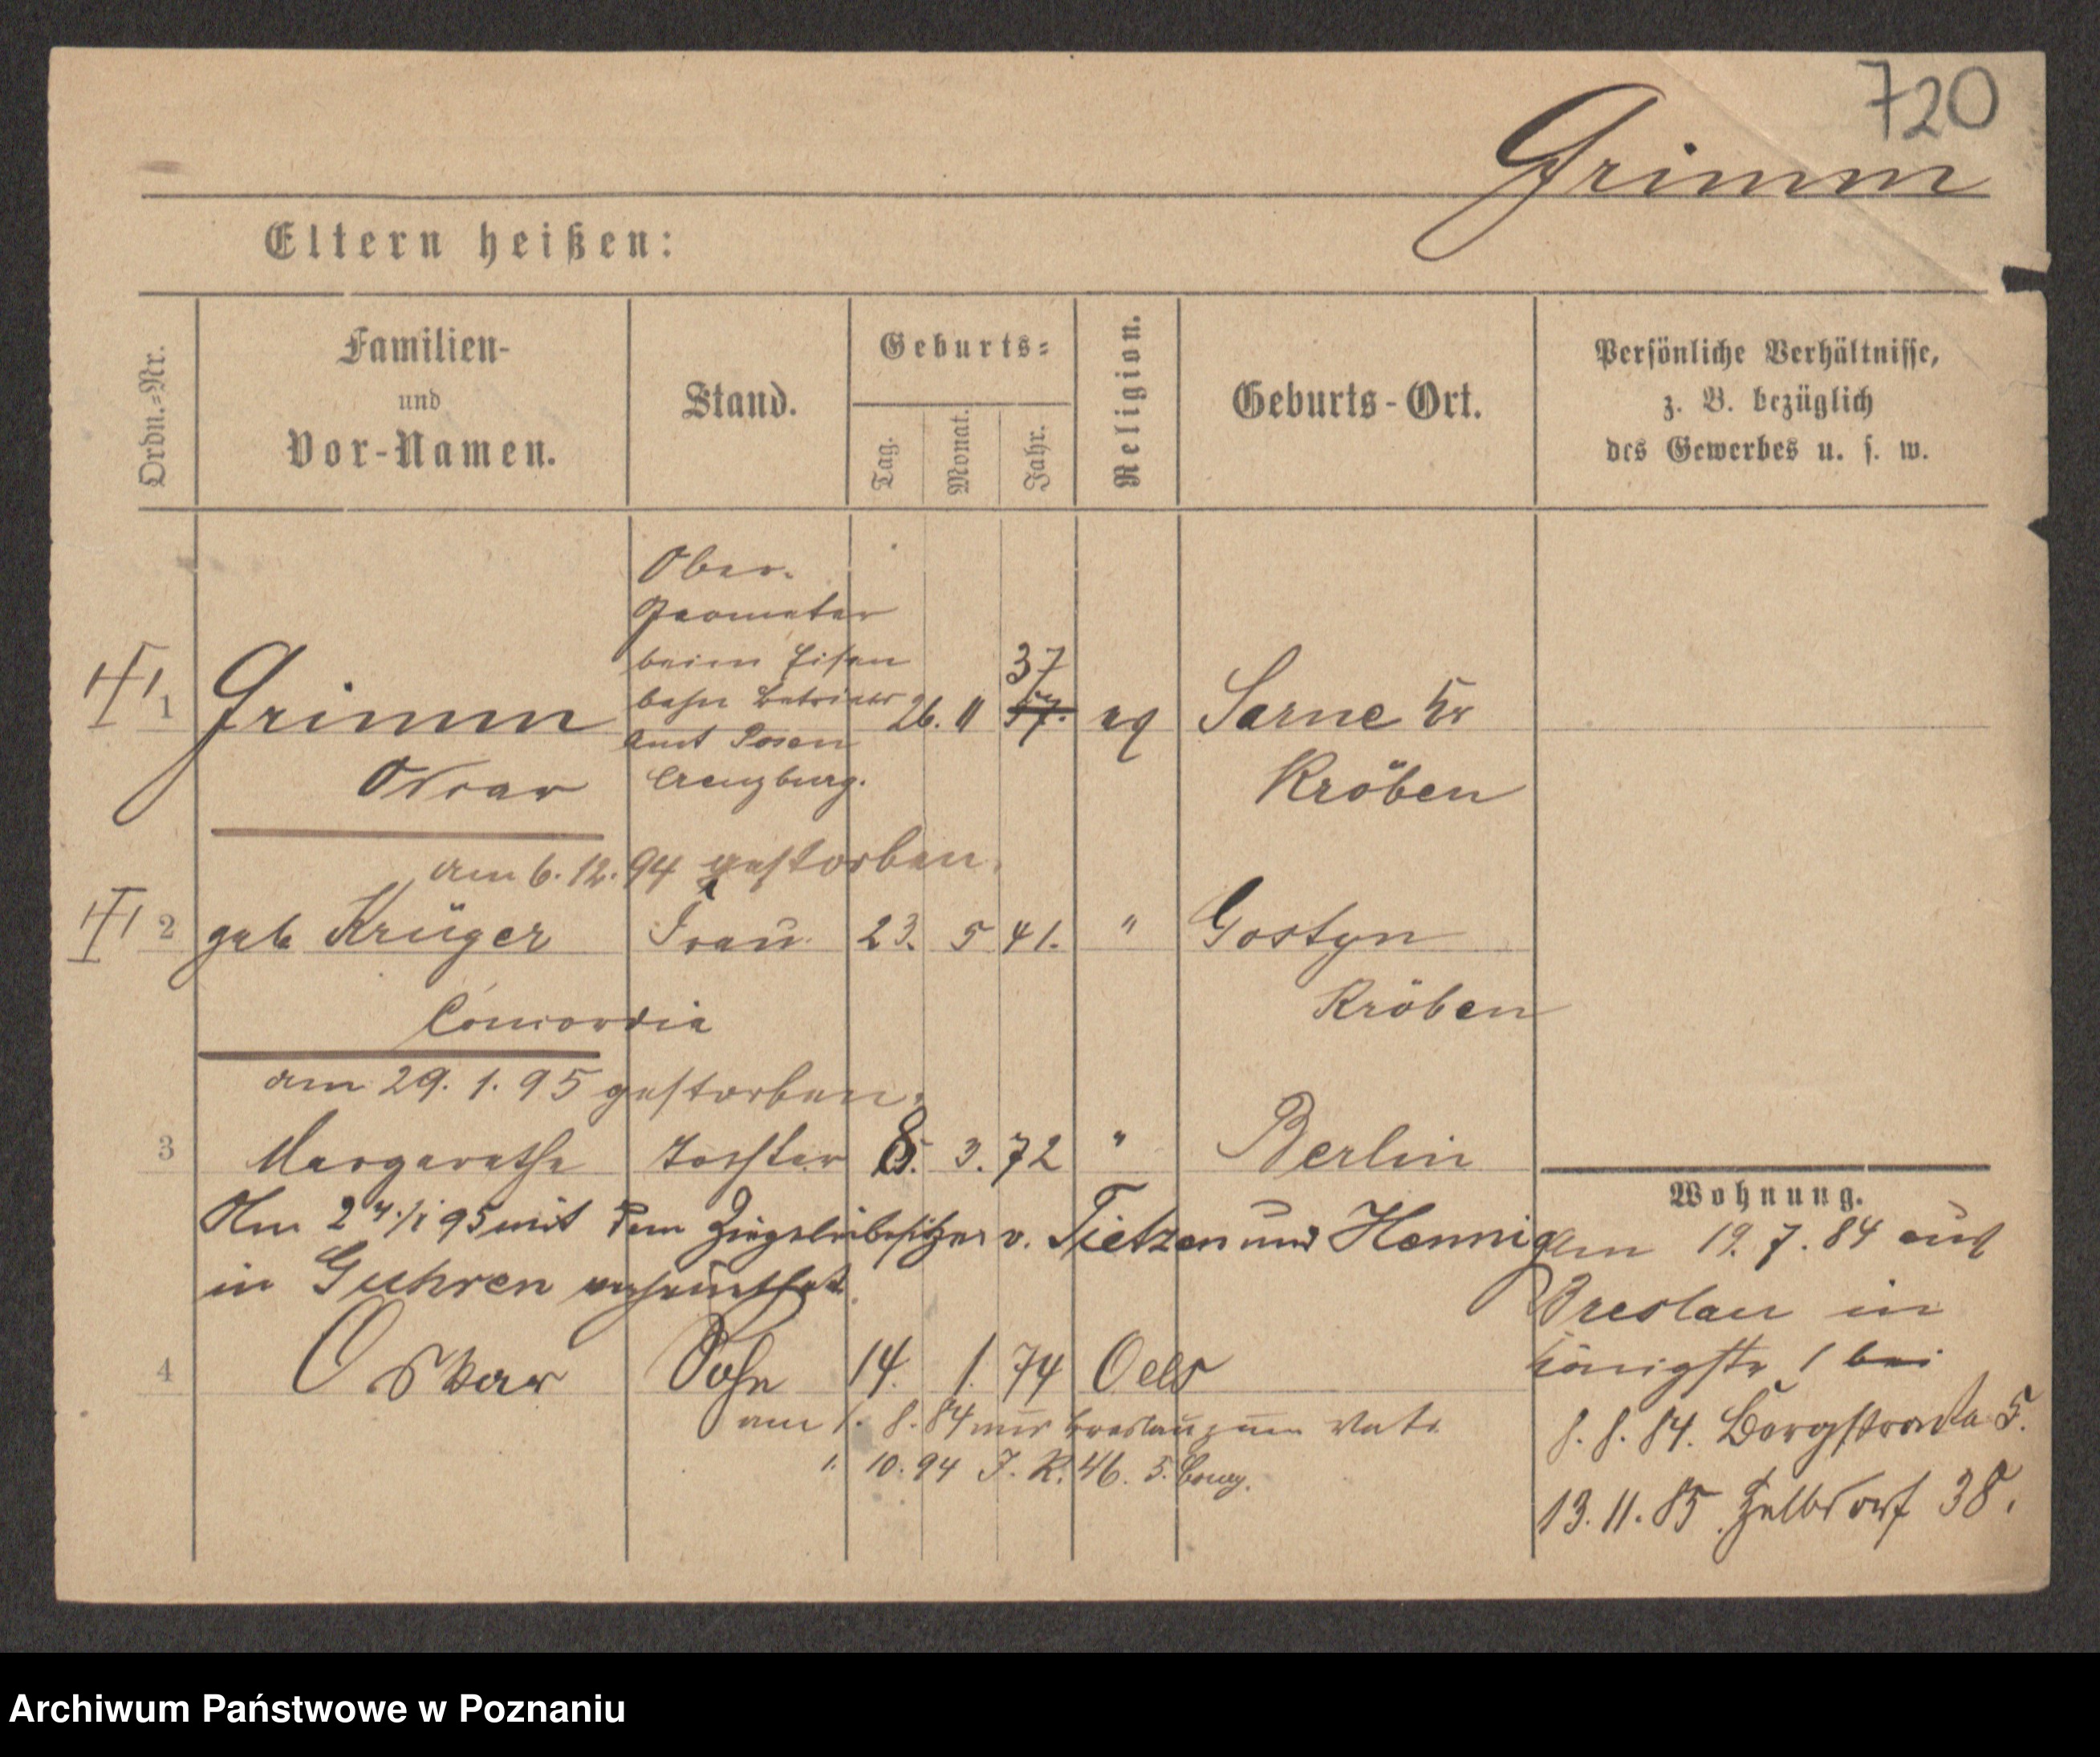 720
Grimm
Eltern heißen:
Ordn.-Nr.
Familien-
und
Vor-Namen.
Stand.
Geburts-
Tag.
Monat.
Jahr.
Religion.
Geburts-Ort.
Persönliche Verhältnisse,
z. B. bezüglich
des Gewerbes u. s. w.
Ober-
Geometer
beim Eisen
bahn Betriebs
amt Posen
Creuzburg.
1 Grimm 26. 11 37 57. ev Sarne Kr
Oscar Kröben
am 6. 12. 94 gestorben.
2 geb Krüger Frau 23. 5 41. " Gostyn
Concordia Kröben
am 29. 1. 95 gestorben.
3 Margarethe Tochter 8. 3. 72 " Berlin
Am 24./1 95 mit dem Ziegeleibesitzer v. Tietzen und Hennig
in Guhren verheirathet.
4 Oskar Sohn 14. 1. 74 Oels
am 1. 8. 84 aus Breslau zum Vater
1. 10. 94 J. R. 46. 5. Comp.
Wohnung.
Am 19. 7. 84 aus
Breslau in
Königstr 1 bei
8. 8. 84. Bergstraße 5.
13. 11. 85. 38.
Archiwum Państwowe w Poznaniu